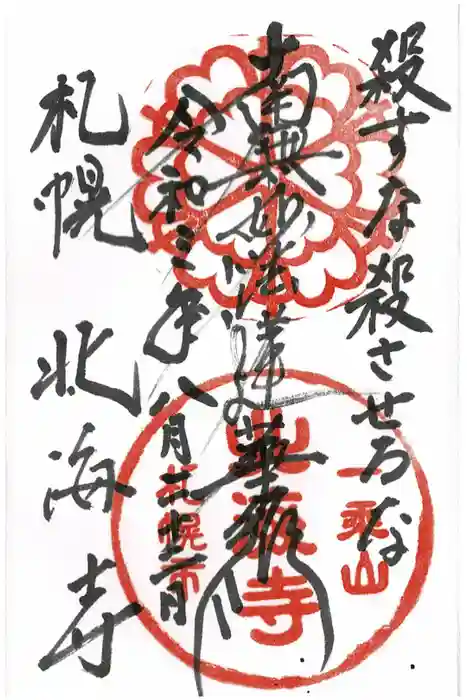 殺すな殺させるな
南無妙法蓮華経
令和三年八月二日
札幌 北海寺
一乗山
北海寺
札幌市